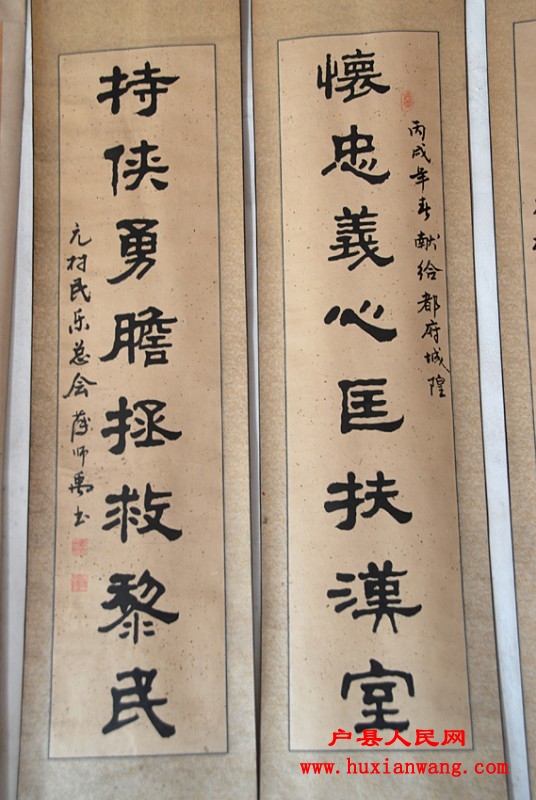 懷忠義心匡扶漢室
丙戌年春 献给都府城隍
持侠勇膽拯救黎民
元村民乐总会 薛师禹书
户县人民网
www.huxianwang.com